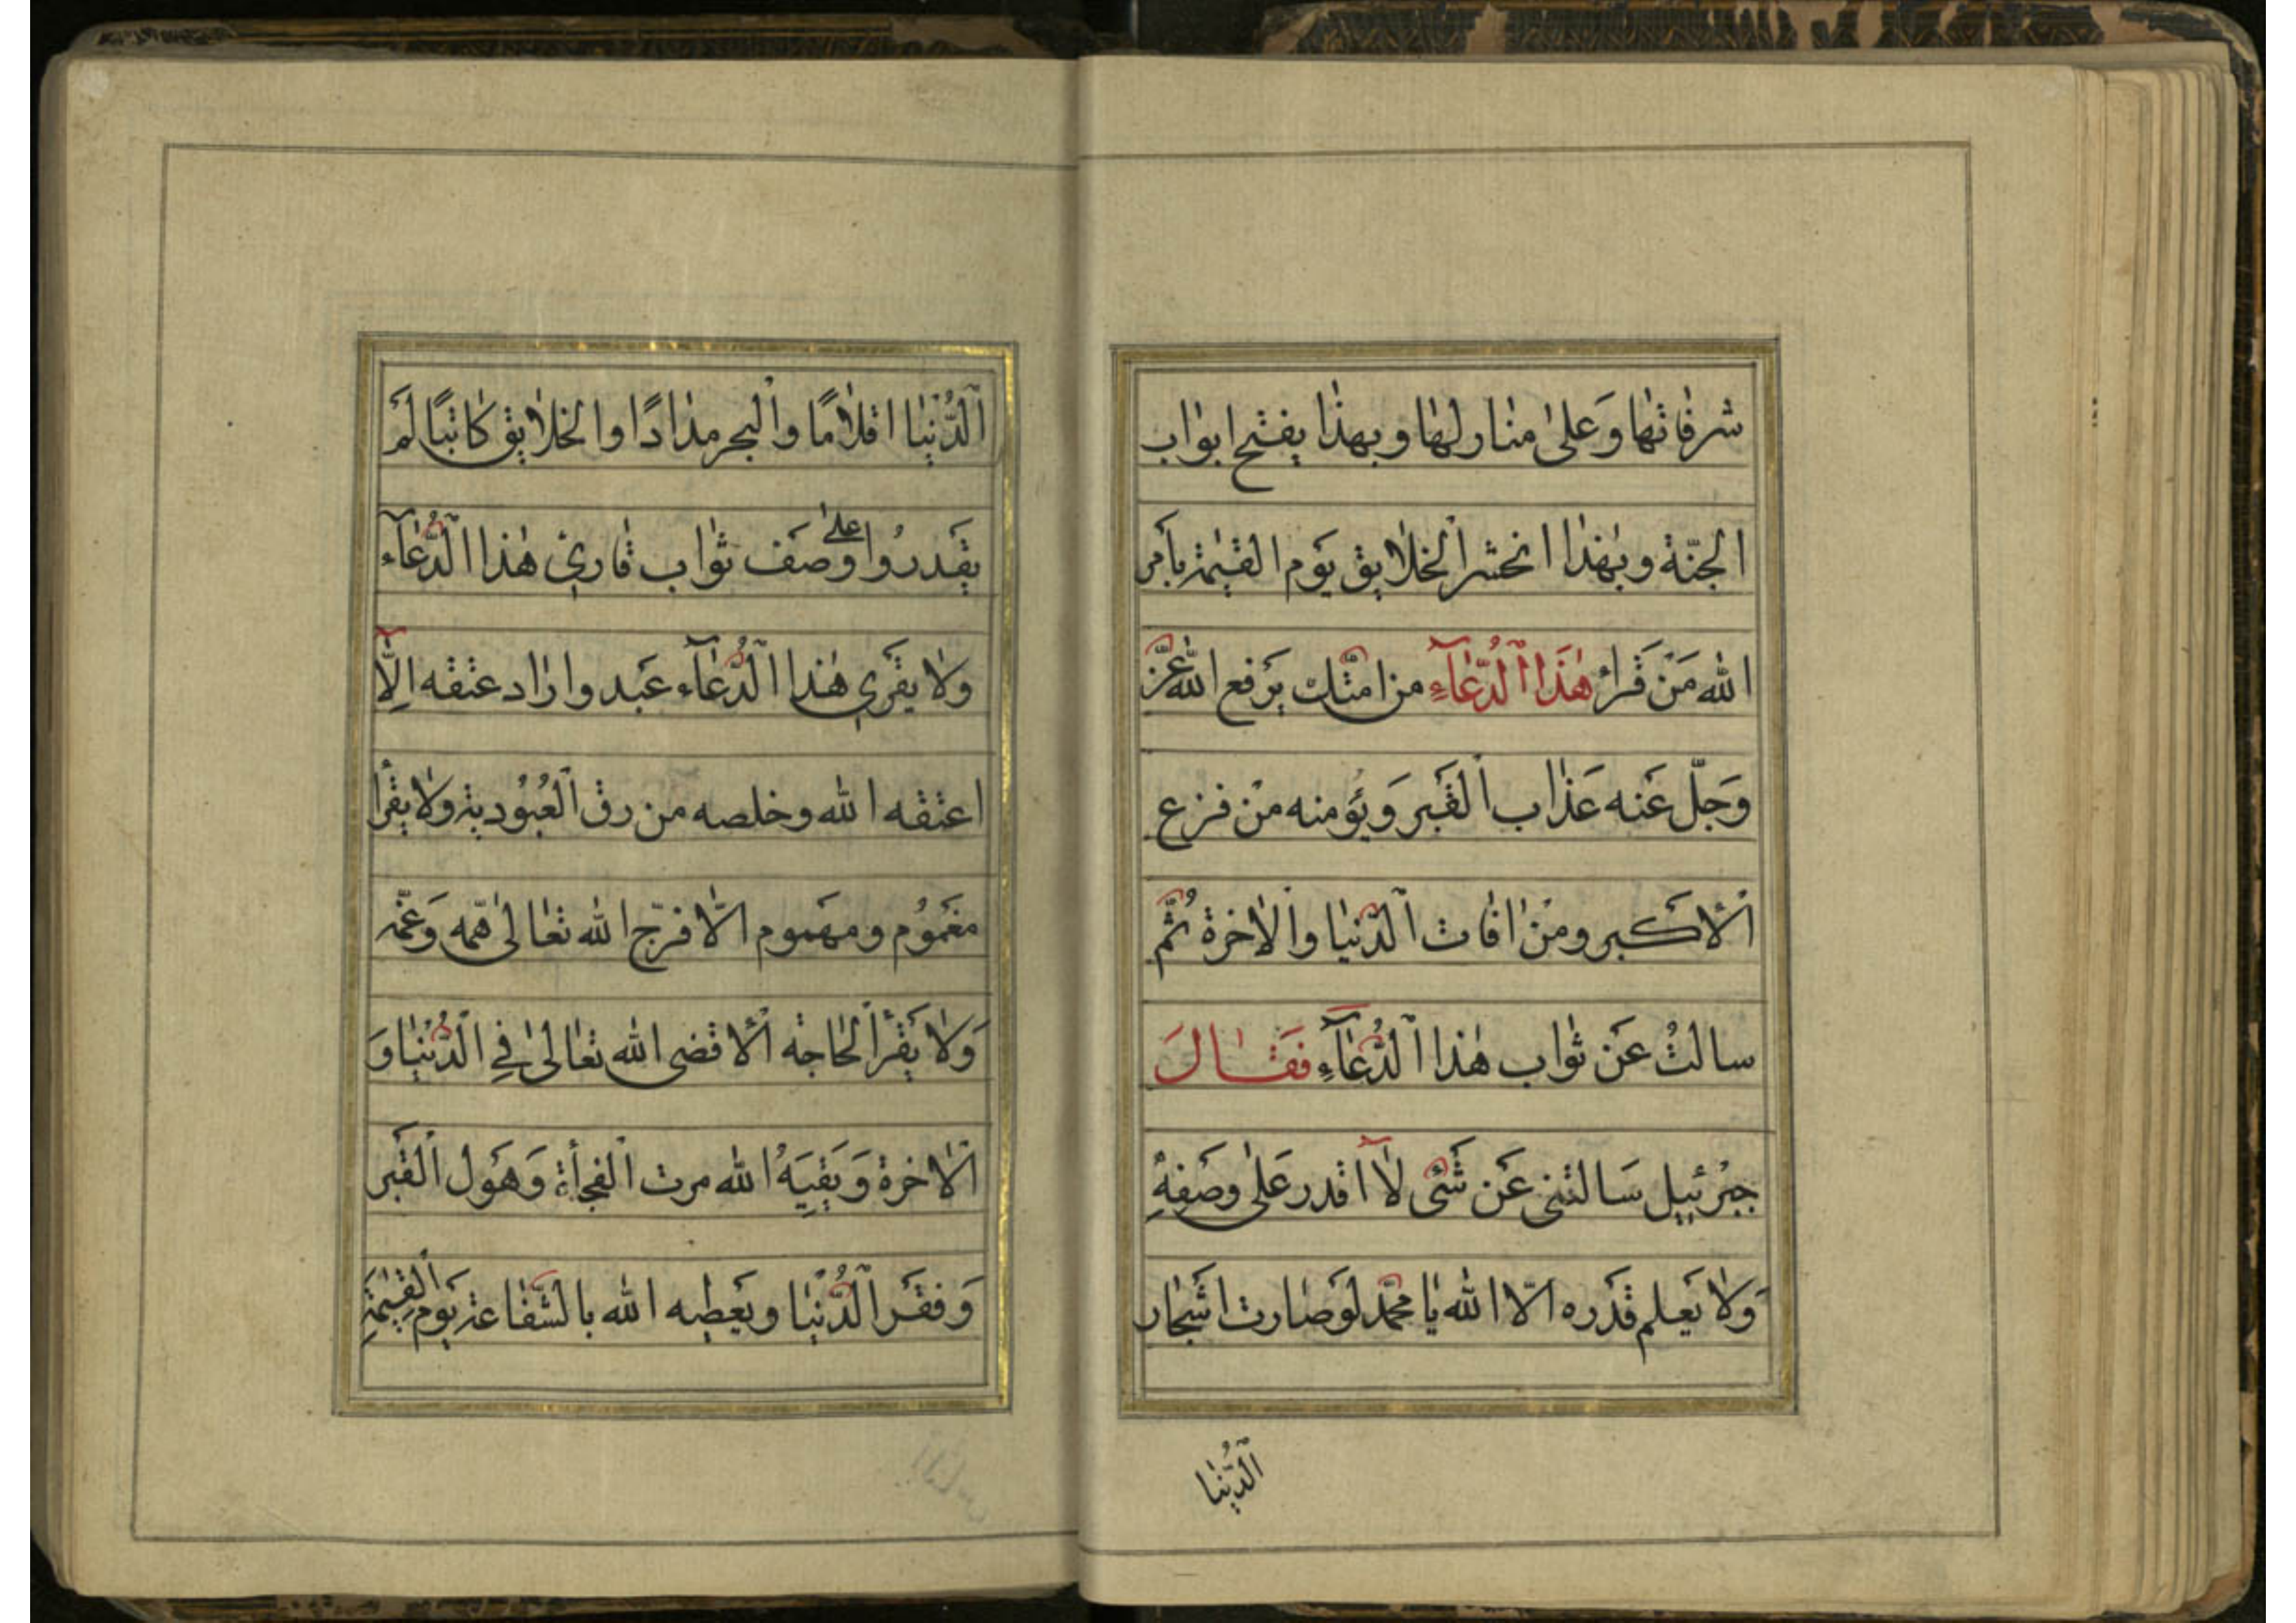 شرفاتها وَعلى منازلها وبهذا يفتح ابواب
الجنّة وبهٰذا انحشر الخلايق يَوم القيٰمة بأمر
الله مَنْ قَرأ هٰذَا الدُّعَآءِ من امّتك يَرفع الله عزّ
وَجلّ عَنه عَذاب القَبر وَيؤمنه مِنْ فزع
الأكبر ومِنْ افات الدّنيا والاخرة ثُمّ
سالتُ عَن ثواب هٰذا الدُّعَآءِ فَقَالَ
جبرُئيل سَالتنى عَن شَئ لا اقدر عَلى وصفهِ
وَلا يَعلم قَدره الّا الله يا محمّد لوَ صارت اشَجار
الدُّنيا
الدُّنْيا اقلامًا والبحر مدادًا والخلايق كاتبًا لَمْ
يقَدرُوا على وَصَف ثواب قارئ هٰذا الدُّعَآء
ولا يقَرئ هٰذا الدُّعَآء عَبد واراد عتقه اِلّا
اعتقه الله وخلصه من رق العُبُودية ولا يقرأ
مغمُوم ومهَموم الّا فرّج الله تعالى همّه وَغمّه
وَلا يقَرأ لحاجة الّا قضى الله تعالى فِي الدُّنيا وَ
الاخرة وَيقِيَهُ الله موت الفجأة وَهَول القَبر
وَفقَر الدُّنيا ويَعطيه الله بالشّفاعة يَوم القيٰمَةِ